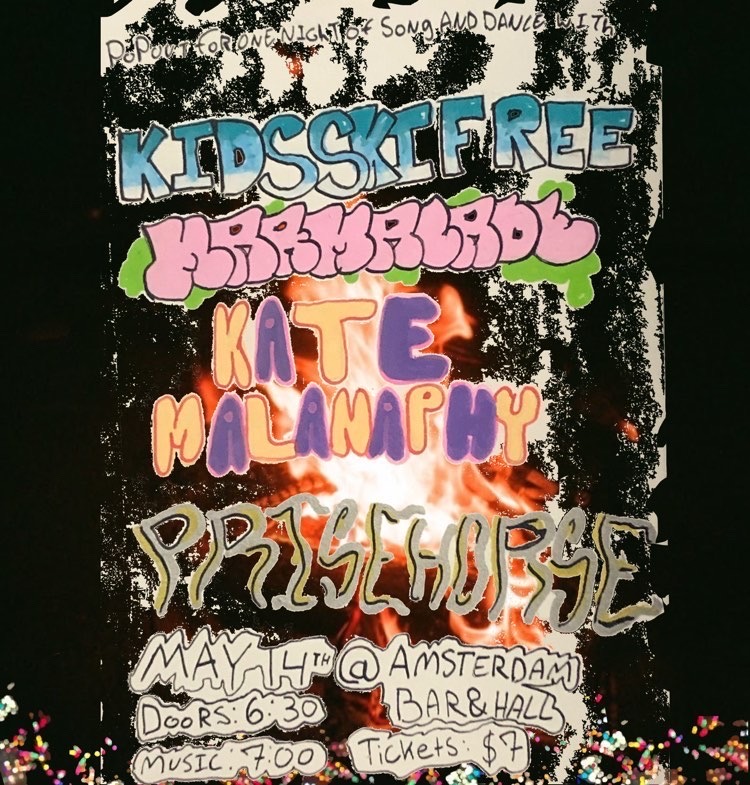 POPOUT FOR ONE NIGHT OF SONG AND DANCE WITH
KIDSSKIFREE
MARMALADE
KATE
MALANAPHY
PRISEHORSE
MAY 14TH @ AMSTERDAM
DOORS: 6:30 BAR & HALL
MUSIC: 7:00 TICKETS: $7